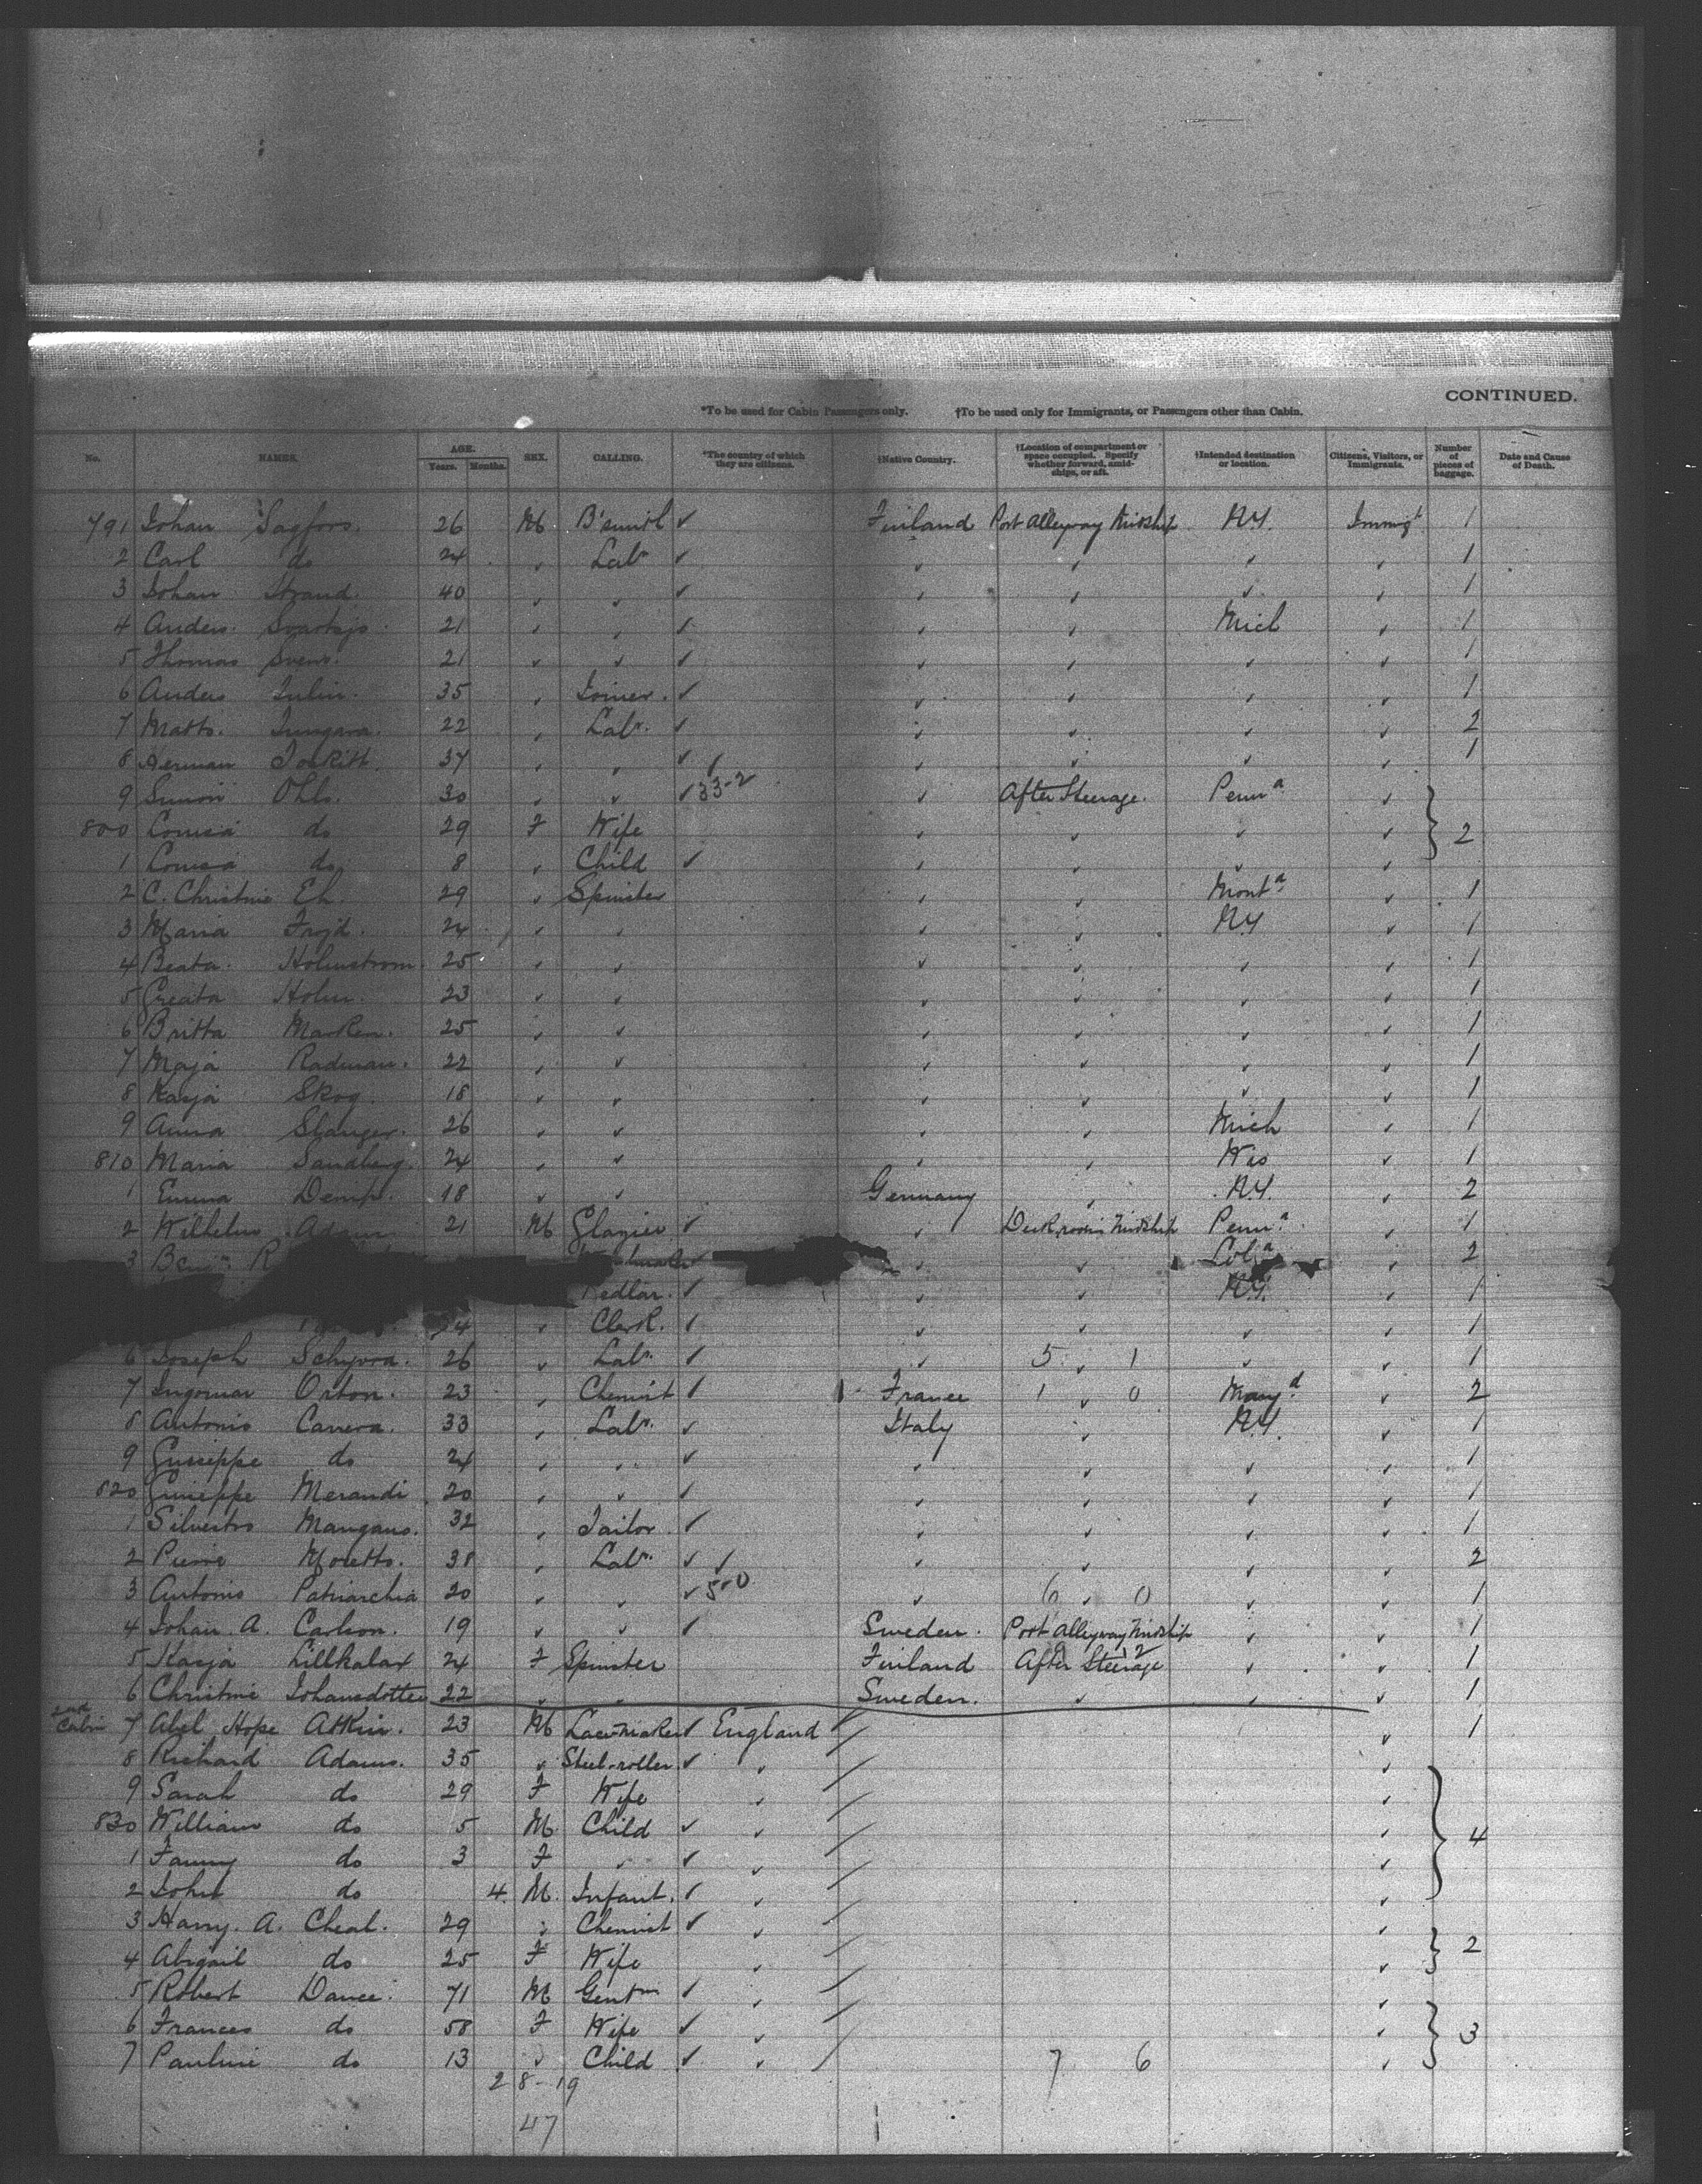 CONTINUED.
*To be used for Cabin Passengers only. †To be used only for Immigrants, or Passengers other than Cabin.
No. NAMES. AGE. Years. Months. SEX. CALLING. *The country of which they are citizens. †Native Country. †Location of compartment or space occupied. Specify whether forward, amidships, or aft. †Intended destination or location. Citizens, Visitors, or Immigrants. Number of pieces of baggage. Date and Cause of Death.
791 Johan Sagfors. 26 M B'smith ✓ Finland Port Alleyway Midship N.Y. Immigt 1
2 Carl do 24 " Labr ✓ " " " " 1
3 Johan Strand. 40 " " ✓ " " " " 1
4 Anders. 21 " " ✓ " " Mich " 1
5 Thomas Svens. 21 " " ✓ " " " " 1
6 Anders Julin. 35 " Joiner. ✓ " " " " 1
7 Matts. 22 " Labr. ✓ " " " " 2
8 Herman 37 " " ✓ " " " " 1
9 Simon Ohls. 30 " " ✓ 33-2 " After Steerage. Penna "
800 Lovisa do 29 F Wife " " " " 2
1 Lovisa do 8 " Child ✓ " " " "
2 C. Christine Ek. 29 " Spinster " " Monta " 1
3 Maria Frojd. 24 " " " " N.Y " 1
4 Beata. Holmstrom. 25 " " " " " " 1
5 Greata Holm. 23 " " " " " " 1
6 Britta Marken. 25 " " " " " " 1
7 Maja Radman. 22 " " " " " " 1
8 Kaja Skog. 18 " " " " " " 1
9 Anna Slanger. 26 " " " " Mich " 1
810 Maria Sandberg. 24 " " " " Wis " 1
1 Emma 18 " " Germany " N.Y. " 2
2 Wilhelm Adam 21 M Glazier ✓ " Deck rooms Midship Penna. " 1
3 R ✓ " " Cola " 2
Pedlar. ✓ " " N.Y. " 1
4 " Clerk. ✓ " " " " 1
6 Joseph 26 " Labr. ✓ " 5 " 1 " " 1
7 Ingomar Orton. 23 " Chemist ✓ France 1 " 0 Maryd " 2
8 Antonio Carrera. 33 " Labr. ✓ Italy " N.Y. " 1
9 Guiseppe do 24 " " ✓ " " " " 1
820 Guiseppe Merandi 20 " " ✓ " " " " 1
1 Silvestro Mangano. 32 " Tailor. ✓ " " " " 1
2 Pierre Moretto. 38 " Labr. ✓ " " " " 2
3 Antonio Patriarchia 20 " " ✓ 5-0 " 6 " 0 " " 1
4 Johan. A. Carlson. 19 " " ✓ Sweden. Port Alleyway Midship " " 1
5 Kaja Lillkalax 24 F Spinster Finland After Steerage " " 1
6 Christine Johansdotter 22 " " Sweden. " " " 1
2nd Cabin 7 Abel Hope Atkin. 23 M Lace-maker ✓ England " 1
8 Richard Adams. 35 " Steel-roller ✓ " "
9 Sarah do 29 F Wife " "
830 William do 5 M. Child ✓ " " 4
1 Fanny do 3 F " ✓ " "
2 John do 4. M. Infant. ✓ " "
3 Harry. A. Cheal. 29 " Chemist ✓ " "
4 Abigail do 25 F Wife " " 2
5 Robert Dance. 71 M Gentmn ✓ " "
6 Frances do 58 F Wife ✓ " " 3
7 Pauline do 13 " Child ✓ " 7 6 "
28-19
47